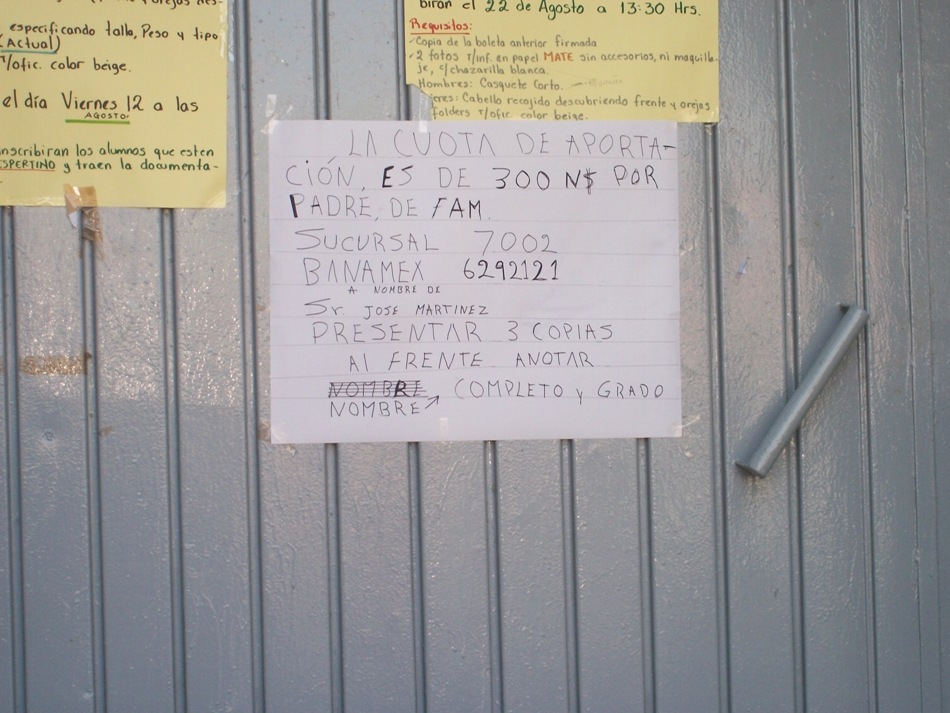 especificando talla, Peso y tipo
(Actual)
T/ofic. color beige.
el día Viernes 12 a las
AGOSTO
inscribiran los alumnos que esten
ESPERTINO y traen la documenta-
biran el 22 de Agosto a 13:30 Hrs.
Requisitos:
✓Copia de la boleta anterior firmada
✓2 fotos T/inf. en papel MATE sin accesorios, ni maquilla-
je, c/chazarilla blanca.
Hombres: Casquete Corto.
jeres: Cabello recojido descubriendo frente y orejas
folders T/ofic. color beige.
LA CUOTA DE APORTA-
CIÓN, ES DE 300 N$ POR
PADRE, DE FAM.
SUCURSAL 7002
BANAMEX 6292121
A NOMBRE DE
Sr. JOSE MARTINEZ
PRESENTAR 3 COPIAS
Al FRENTE ANOTAR
NOMBRE COMPLETO y GRADO
NOMBRE↗